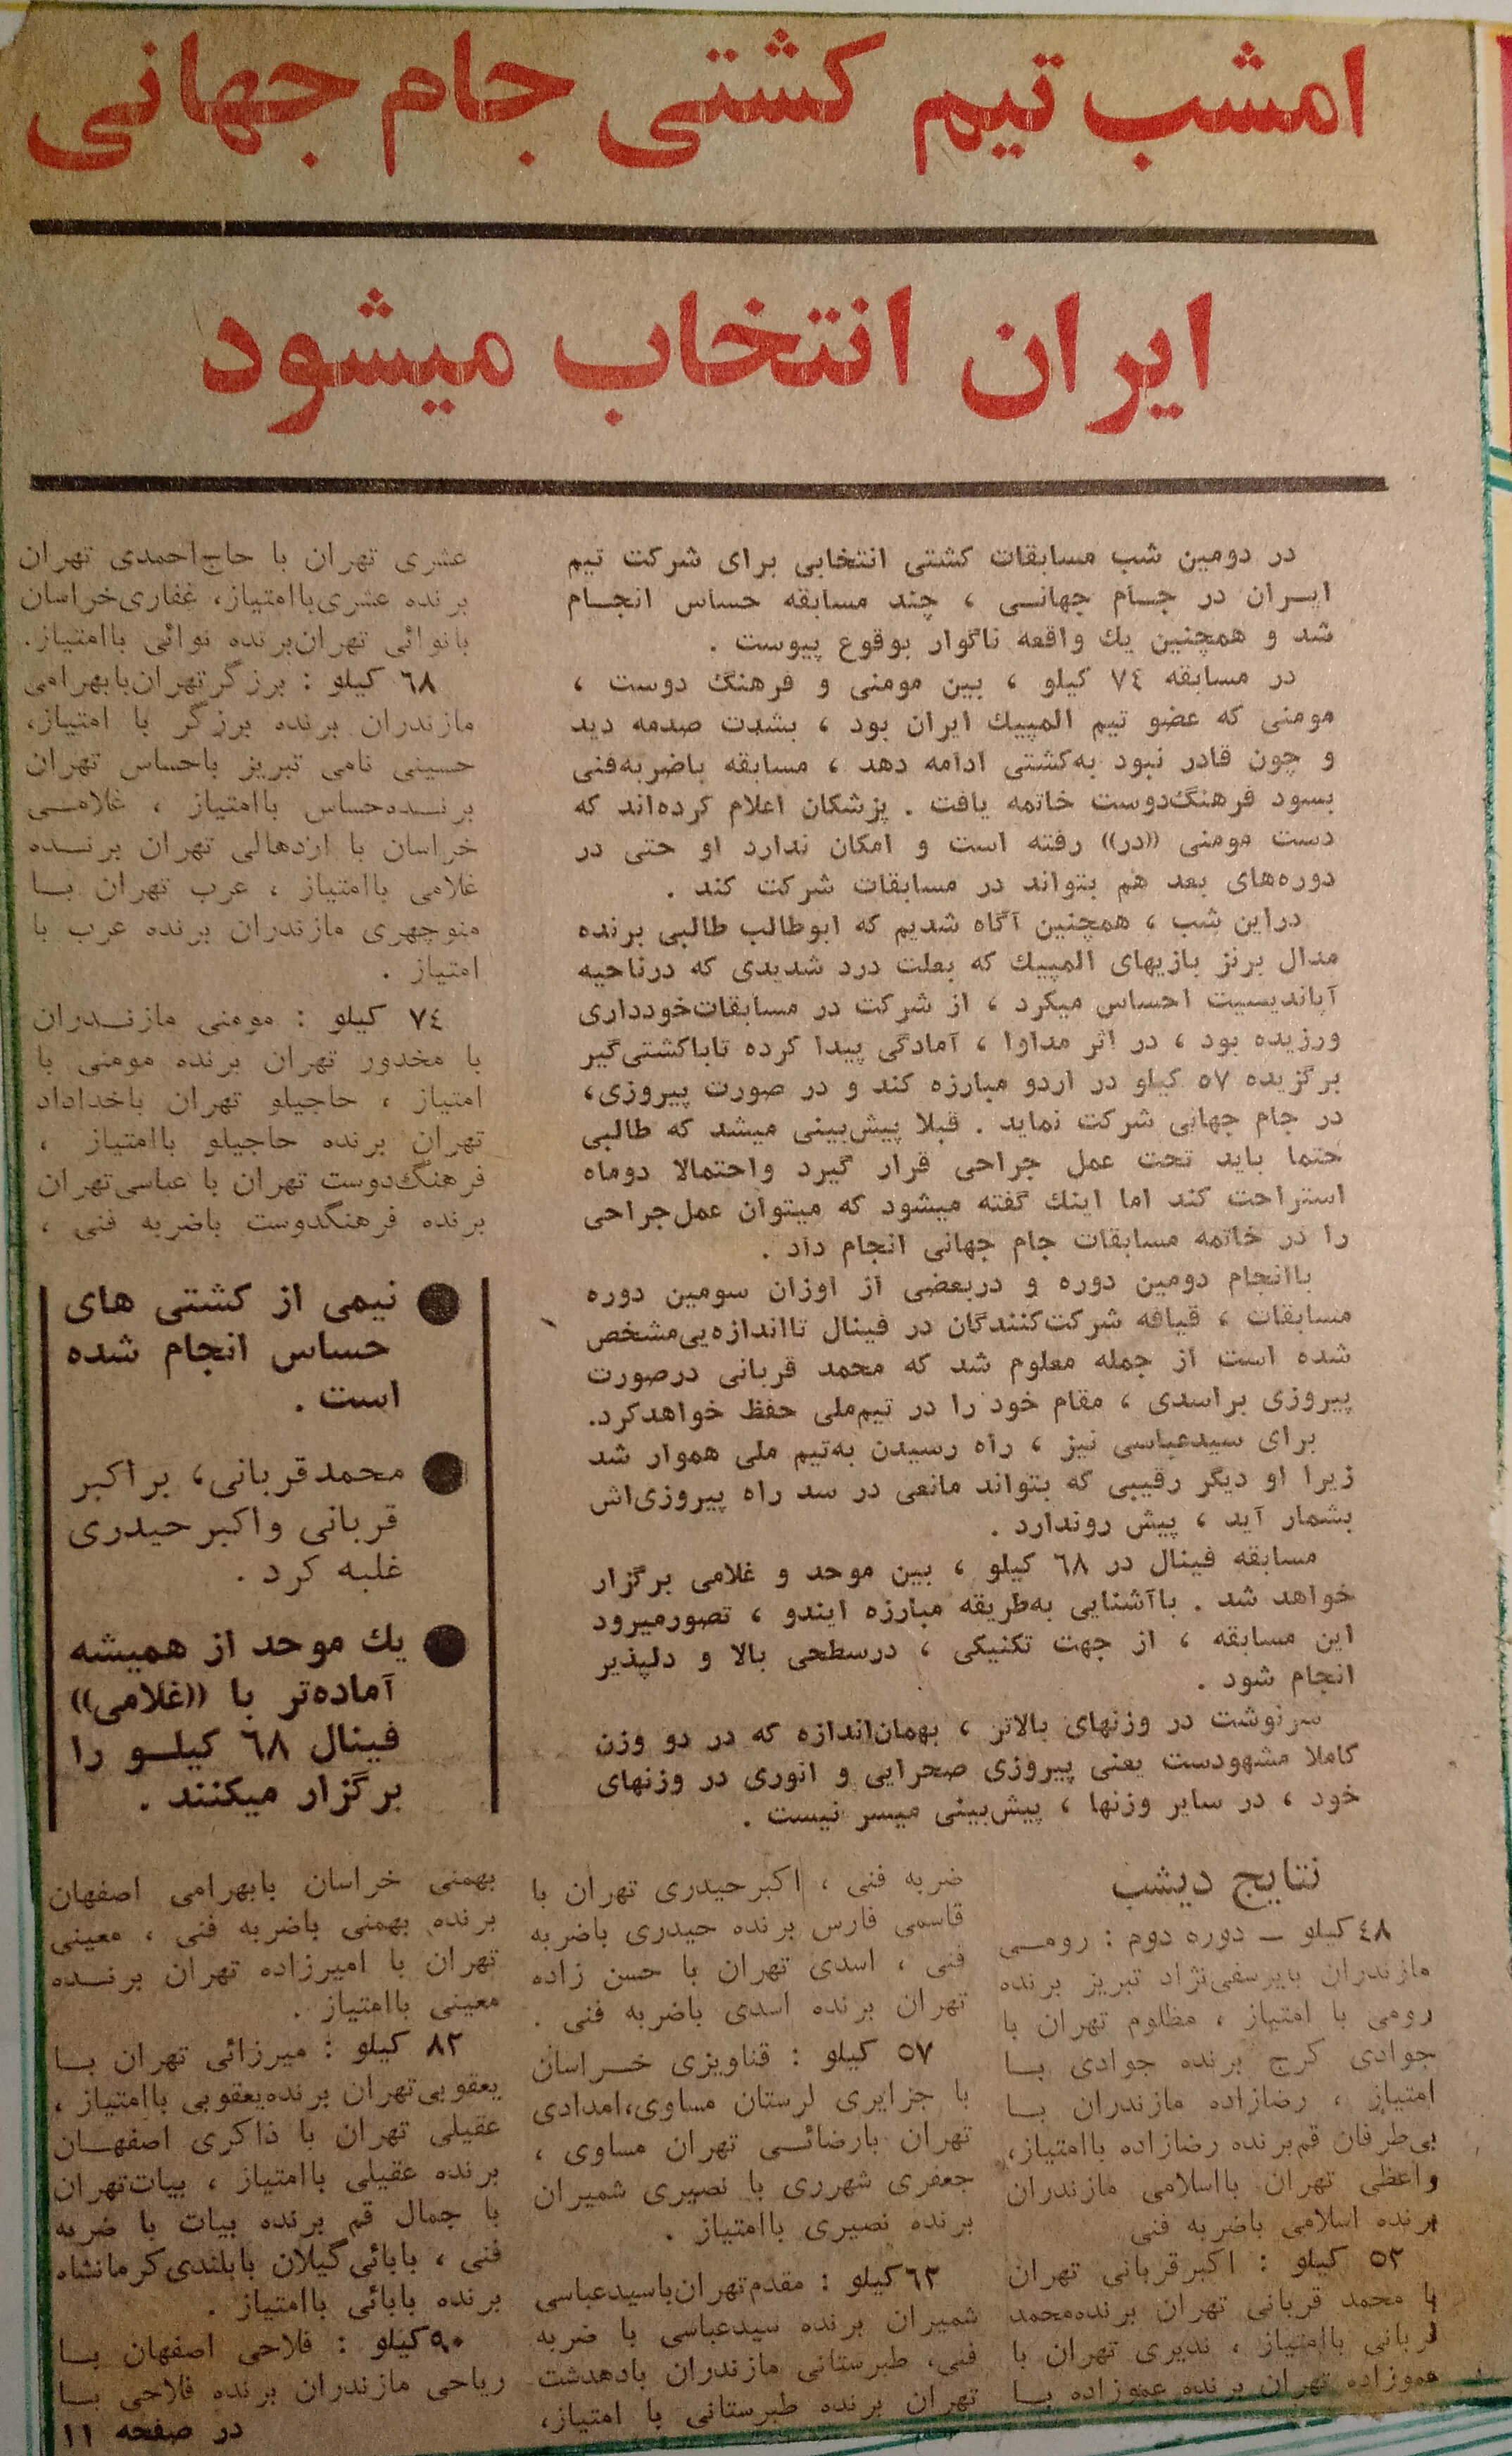 امشب تیم کشتی جام جهانی
ایران انتخاب میشود
در دومین شب مسابقات کشتی انتخابی برای شرکت تیم
ایـران در جـام جهانـی ، چند مسابقه حساس انجـام
شد و همچنین یك واقعه ناگوار بوقوع پیوست .
در مسابقه ٧٤ کیلو ، بین مومنی و فرهنگ دوست ،
مومنی که عضو تیم المپیك ایران بود ، بشدت صدمه دید
و چون قادر نبود به‌کشتی ادامه دهد ، مسابقه باضربه‌فنی
بسود فرهنگ‌دوست خاتمه یافت . پزشکان اعلام کرده‌اند که
دست مومنی ((در)) رفته است و امکان ندارد او حتی در
دوره‌های بعد هم بتواند در مسابقات شرکت کند .
دراین شب ، همچنین آگاه شدیم که ابوطالب طالبی برنده
مدال برنز بازیهای المپیك که بعلت درد شدیدی که درناحیه
آپاندیسیت احساس میکرد ، از شرکت در مسابقات‌خودداری
ورزیده بود ، در اثر مداوا ، آمادگی پیدا کرده تاباکشتی‌گیر
برگزیده ٥٧ کیلو در اردو مبارزه کند و در صورت پیروزی،
در جام جهانی شرکت نماید . قبلا پیش‌بینی میشد که طالبی
حتما باید تحت عمل جراحی قرار گیرد واحتمالا دوماه
استراحت کند اما اینك گفته میشود که میتوان عمل‌جراحی
را در خاتمه مسابقات جام جهانی انجام داد .
باانجام دومین دوره و دربعضی از اوزان سومین دوره
مسابقات ، قیافه شرکت‌کنندگان در فینال تااندازه‌یی‌مشخص
شده است از جمله معلوم شد که محمد قربانی درصورت
پیروزی براسدی ، مقام خود را در تیم‌ملی حفظ خواهدکرد.
برای سیدعباسی نیز ، راه رسیدن به‌تیم ملی هموار شد
زیرا او دیگر رقیبی که بتواند مانعی در سد راه پیروزی‌اش
بشمار آید ، پیش روندارد .
مسابقه فینال در ٦٨ کیلو ، بین موحد و غلامی برگزار
خواهد شد . باآشنایی به‌طریقه مبارزه ایندو ، تصورمیرود
این مسابقه ، از جهت تکنیکی ، درسطحی بالا و دلپذیر
انجام شود .
سرنوشت در وزنهای بالاتر ، بهمان‌اندازه که در دو وزن
کاملا مشهودست یعنی پیروزی صحرایی و انوری در وزنهای
خود ، در سایر وزنها ، پیش‌بینی میسر نیست .
نتایج دیشب
٤٨ کیلو ــ دوره دوم : رومـی
مازندران بایرسفی‌نژاد تبریز برنده
رومی با امتیاز ، مظلوم تهران با
جوادی کرج برنده جوادی بـا
امتیاز ، رضازاده مازندران بـا
بی‌طرفان قم‌برنده رضازاده باامتیاز،
واعظی تهران بااسلامی مازندران
برنده اسلامی باضربه فنی
٥٢ کیلو : اکبرقربانی تهران
با محمد قربانی تهران برنده‌محمد
قربانی باامتیاز ، ندیری تهران با
عموزاده تهران برنده عموزاده بـا
ضربه فنی ، اکبرحیدری تهران با
قاسمی فارس برنده حیدری باضربه
فنی ، اسدی تهران با حسن زاده
تهران برنده اسدی باضربه فنی .
٥٧ کیلو : قناویزی خـراسان
با جزایری لرستان مساوی،امدادی
تهران بارضائـی تهران مساوی ،
جعفری شهرری با نصیری شمیران
برنده نصیری باامتیاز .
٦٢کیلو : مقدم‌تهران‌باسیدعباسی
شمیران برنده سیدعباسی با ضربه
فنی، طبرستانی مازندران بادهدشت
تهران برنده طبرستانی با امتیاز،
عشری تهران با حاج‌احمدی تهران
برنده عشری‌باامتیاز، غفاری‌خراسان
بانوائی تهران‌برنده نوائی باامتیاز.
٦٨ کیلو : برزگرتهران‌بابهرامی
مازندران برنده برزگر با امتیاز،
حسینی نامی تبریز باحساس تهران
برنـده‌حساس باامتیاز ، غلامـی
خراسان با اردهالی تهران برنـده
غلامی باامتیاز ، عرب تهران بـا
منوچهری مازندران برنده عرب با
امتیاز .
٧٤ کیلو : مومنی مازنـدران
با مخدور تهران برنده مومنی با
امتیاز ، حاجیلو تهران باخداداد
تهران برنده حاجیلو باامتیاز ،
فرهنگ‌دوست تهران با عباسی‌تهران
برنده فرهنگدوست باضربه فنی ،
● نیمی از کشتی های
حساس انجام شده
است .
● محمدقربانی، براکبر
قربانی واکبرحیدری
غلبه کرد .
● یك موحد از همیشه
آماده‌تر با ((غلامی))
فینال ٦٨ کیلـو را
برگزار میکنند .
بهمنی خراسان بابهرامی اصفهان
برنده بهمنی باضربه فنی ، معینی
تهران با امیرزاده تهران برنـده
معینی باامتیاز .
٨٢ کیلو : میرزائی تهران بـا
یعقوبی‌تهران برنده‌یعقوبی باامتیاز ،
عقیلی تهران با ذاکری اصفهـان
برنده عقیلی باامتیاز ، بیات‌تهران
با جمال قم برنده بیات با ضربه
فنی ، بابائی‌گیلان بابلندی‌کرمانشاه
برنده بابائی باامتیاز .
٩٠کیلو : فلاحی اصفهان بـا
ریاحی مازندران برنده فلاحی بـا
در صفحه ١١